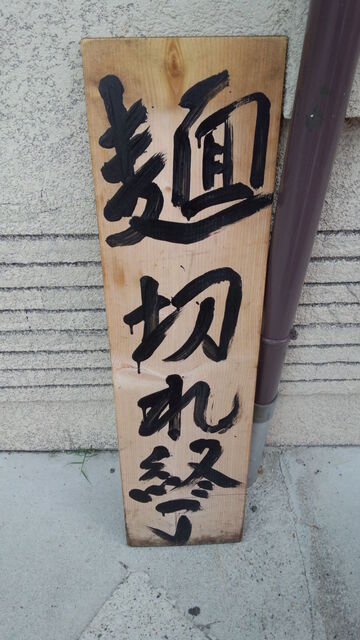 麺切れ終了